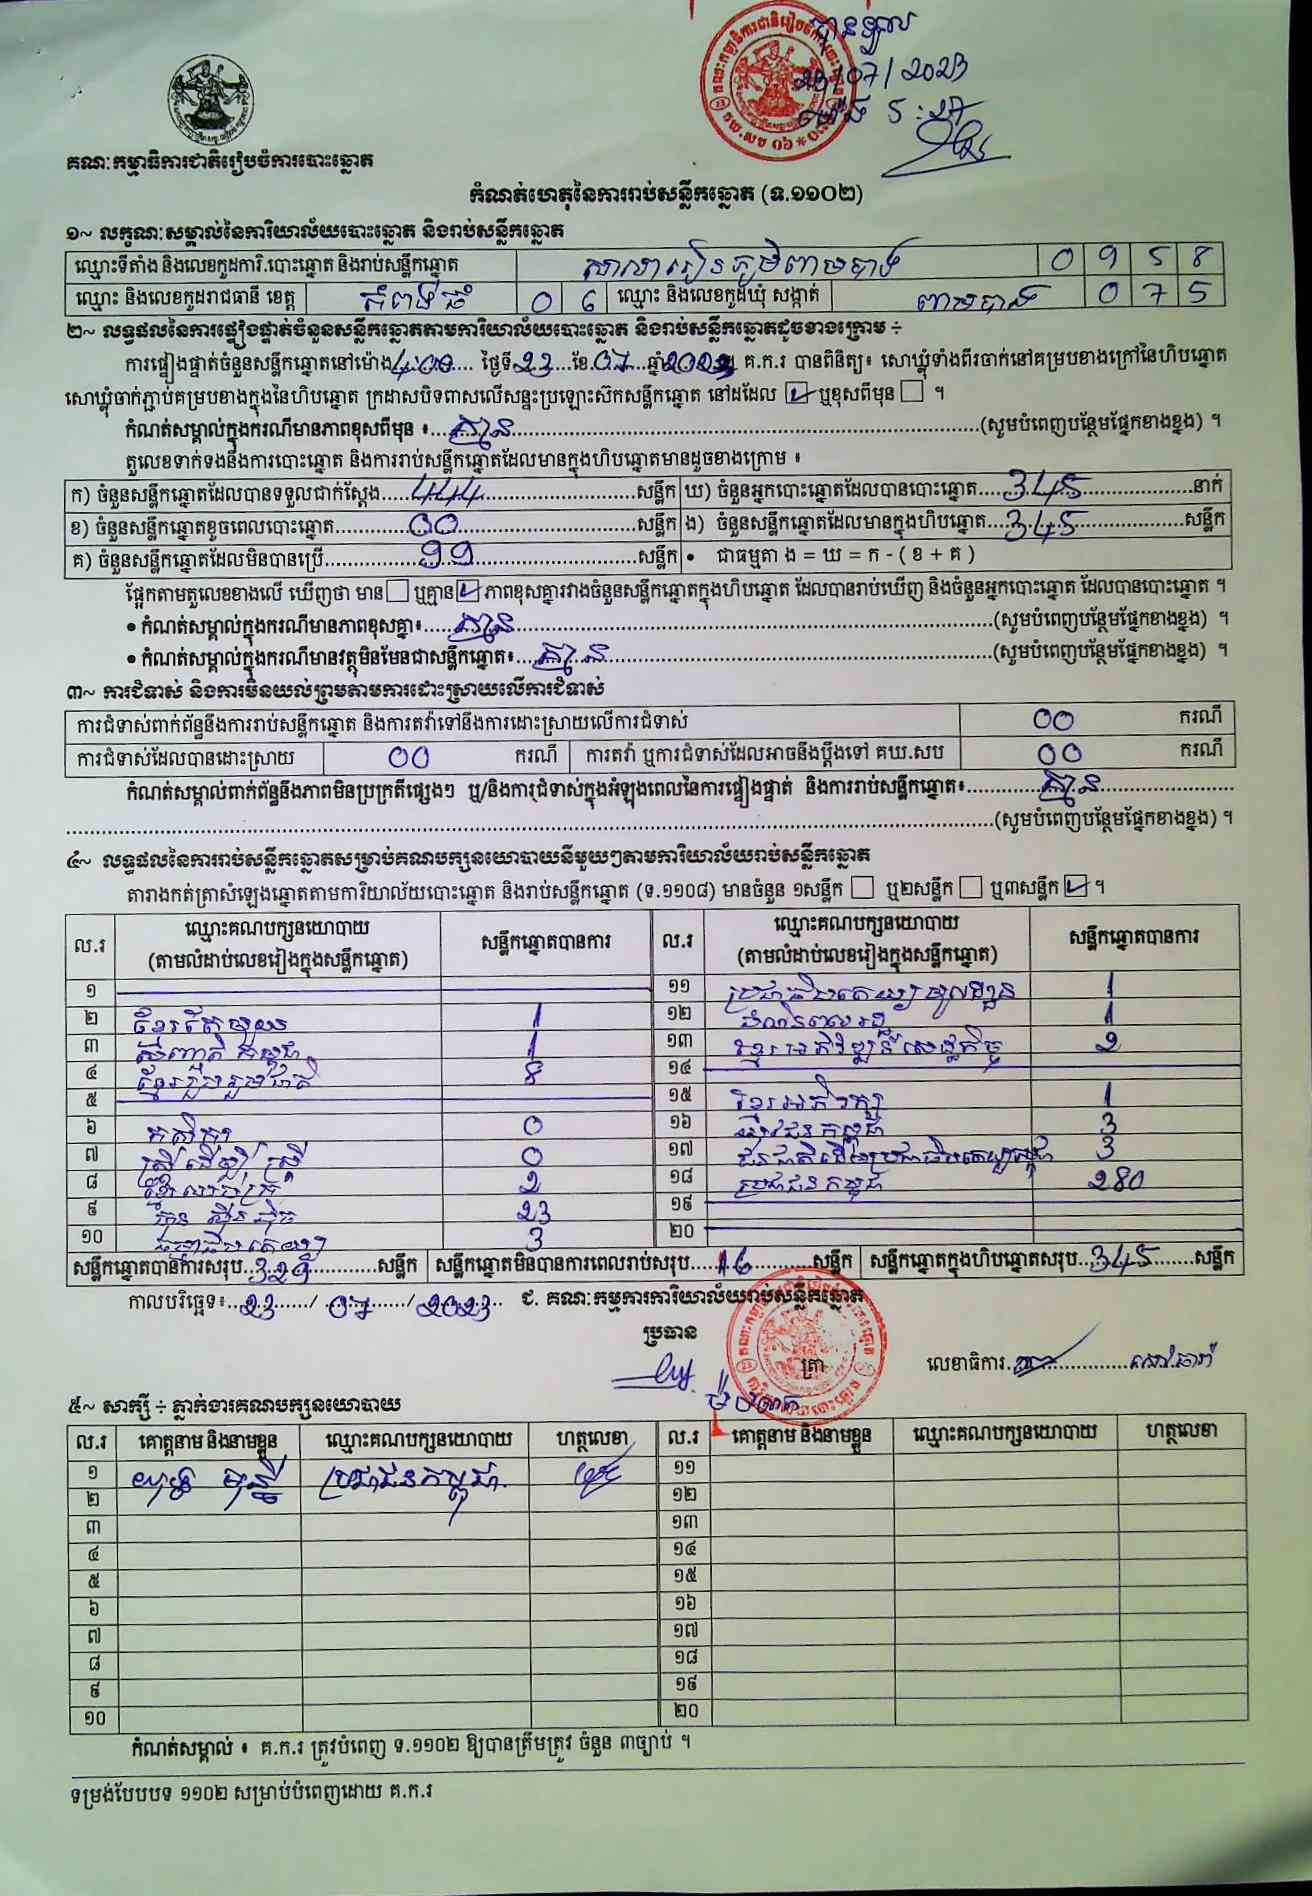 បានទទួល
23/07/2023
ម៉ោង 5:27
គណៈកម្មាធិការជាតិរៀបចំការបោះឆ្នោត
កំណត់ហេតុនៃការរាប់សន្លឹកឆ្នោត (ទ.១១០២)
១~ លក្ខណៈសម្គាល់នៃការិយាល័យបោះឆ្នោត និងរាប់សន្លឹកឆ្នោត
ឈ្មោះទីតាំង និងលេខកូដការិ.បោះឆ្នោត និងរាប់សន្លឹកឆ្នោត សាលារៀនភូមិពាមបាង 0 9 5 8
ឈ្មោះ និងលេខកូដរាជធានី ខេត្ត កំពង់ធំ 0 6 ឈ្មោះ និងលេខកូដឃុំ សង្កាត់ ពាមបាង 0 7 5
២~ លទ្ធផលនៃការផ្ទៀងផ្ទាត់ចំនួនសន្លឹកឆ្នោតតាមការិយាល័យបោះឆ្នោត និងរាប់សន្លឹកឆ្នោតដូចខាងក្រោម ÷
ការផ្ទៀងផ្ទាត់ចំនួនសន្លឹកឆ្នោតនៅម៉ោង 4:00 ថ្ងៃទី 23 ខែ 07 ឆ្នាំ 2023 គ.ក.រ បានពិនិត្យ៖ សោឃ្លុំទាំងពីរចាក់នៅគម្របខាងក្រៅនៃហិបឆ្នោត
សោឃ្លុំចាក់ភ្ជាប់គម្របខាងក្នុងនៃហិបឆ្នោត ក្រដាសបិទពាសលើសន្ទះប្រឡោះស៊កសន្លឹកឆ្នោត នៅដដែល ☑ ឬខុសពីមុន ☐ ។
កំណត់សម្គាល់ក្នុងករណីមានភាពខុសពីមុន ៖ គ្មាន (សូមបំពេញបន្ថែមផ្នែកខាងខ្នង) ។
តួលេខទាក់ទងនឹងការបោះឆ្នោត និងការរាប់សន្លឹកឆ្នោតដែលមានក្នុងហិបឆ្នោតមានដូចខាងក្រោម ៖
ក) ចំនួនសន្លឹកឆ្នោតដែលបានទទួលជាក់ស្តែង 444 សន្លឹក ឃ) ចំនួនអ្នកបោះឆ្នោតដែលបានបោះឆ្នោត 345 នាក់
ខ) ចំនួនសន្លឹកឆ្នោតខូចពេលបោះឆ្នោត 00 សន្លឹក ង) ចំនួនសន្លឹកឆ្នោតដែលមានក្នុងហិបឆ្នោត 345 សន្លឹក
គ) ចំនួនសន្លឹកឆ្នោតដែលមិនបានប្រើ 99 សន្លឹក • ជាធម្មតា ង = ឃ = ក - ( ខ + គ )
ផ្អែកតាមតួលេខខាងលើ ឃើញថា មាន ☐ ឬគ្មាន ☑ ភាពខុសគ្នារវាងចំនួនសន្លឹកឆ្នោតក្នុងហិបឆ្នោត ដែលបានរាប់ឃើញ និងចំនួនអ្នកបោះឆ្នោត ដែលបានបោះឆ្នោត ។
• កំណត់សម្គាល់ក្នុងករណីមានភាពខុសគ្នា៖ គ្មាន (សូមបំពេញបន្ថែមផ្នែកខាងខ្នង) ។
• កំណត់សម្គាល់ក្នុងករណីមានវត្ថុមិនមែនជាសន្លឹកឆ្នោត៖ គ្មាន (សូមបំពេញបន្ថែមផ្នែកខាងខ្នង) ។
៣~ ការជំទាស់ និងការមិនយល់ព្រមតាមការដោះស្រាយលើការជំទាស់
ការជំទាស់ពាក់ព័ន្ធនឹងការរាប់សន្លឹកឆ្នោត និងការតវ៉ាទៅនឹងការដោះស្រាយលើការជំទាស់ 00 ករណី
ការជំទាស់ដែលបានដោះស្រាយ 00 ករណី ការតវ៉ា ឬការជំទាស់ដែលអាចនឹងប្តឹងទៅ គឃ.សប 00 ករណី
កំណត់សម្គាល់ពាក់ព័ន្ធនឹងភាពមិនប្រក្រតីផ្សេងៗ ឬ/និងការជំទាស់ក្នុងអំឡុងពេលនៃការផ្ទៀងផ្ទាត់ និងការរាប់សន្លឹកឆ្នោត៖ គ្មាន
(សូមបំពេញបន្ថែមផ្នែកខាងខ្នង) ។
៤~ លទ្ធផលនៃការរាប់សន្លឹកឆ្នោតសម្រាប់គណបក្សនយោបាយនីមួយៗតាមការិយាល័យរាប់សន្លឹកឆ្នោត
តារាងកត់ត្រាសំឡេងឆ្នោតតាមការិយាល័យបោះឆ្នោត និងរាប់សន្លឹកឆ្នោត (ទ.១១០៨) មានចំនួន ១សន្លឹក ☐ ឬ២សន្លឹក ☐ ឬ៣សន្លឹក ☑ ។
ល.រ ឈ្មោះគណបក្សនយោបាយ (តាមលំដាប់លេខរៀងក្នុងសន្លឹកឆ្នោត) សន្លឹកឆ្នោតបានការ ល.រ ឈ្មោះគណបក្សនយោបាយ (តាមលំដាប់លេខរៀងក្នុងសន្លឹកឆ្នោត) សន្លឹកឆ្នោតបានការ
១ ១១ ប្រជាធិបតេយ្យមូលដ្ឋាន 1
២ ខ្មែរតែមួយ 1 ១២ ដំណាំពលរដ្ឋ 1
៣ សញ្ជាតិកម្ពុជា 1 ១៣ ខ្មែរអភិវឌ្ឍន៍សេដ្ឋកិច្ច 2
៤ ខ្មែររួបរួមជាតិ 8 ១៤
៥ ១៥ ខ្មែរអភិរក្ស 1
៦ កសិករ 0 ១៦ យុវជនកម្ពុជា 3
៧ ស្រ្តីដើម្បីស្ត្រី 0 ១៧ ជនជាតិដើមប្រជាធិបតេយ្យកម្ពុជា 3
៨ 2 ១៨ ប្រជាជនកម្ពុជា 280
៩ ហ៊្វុនស៊ិនប៉ិច 23 ១៩
១០ 3 ២០
សន្លឹកឆ្នោតបានការសរុប 329 សន្លឹក សន្លឹកឆ្នោតមិនបានការពេលរាប់សរុប 16 សន្លឹក សន្លឹកឆ្នោតក្នុងហិបឆ្នោតសរុប 345 សន្លឹក
កាលបរិច្ឆេទ៖ 23 / 07 / 2023 ជ. គណៈកម្មការការិយាល័យរាប់សន្លឹកឆ្នោត
ប្រធាន
ត្រា លេខាធិការ
៥~ សាក្សី ÷ ភ្នាក់ងារគណបក្សនយោបាយ
ល.រ គោត្តនាម និងនាមខ្លួន ឈ្មោះគណបក្សនយោបាយ ហត្ថលេខា ល.រ គោត្តនាម និងនាមខ្លួន ឈ្មោះគណបក្សនយោបាយ ហត្ថលេខា
១ ប្រជាជនកម្ពុជា ១១
២ ១២
៣ ១៣
៤ ១៤
៥ ១៥
៦ ១៦
៧ ១៧
៨ ១៨
៩ ១៩
១០ ២០
កំណត់សម្គាល់ ៖ គ.ក.រ ត្រូវបំពេញ ទ.១១០២ ឱ្យបានត្រឹមត្រូវ ចំនួន ៣ច្បាប់ ។
ទម្រង់បែបបទ ១១០២ សម្រាប់បំពេញដោយ គ.ក.រ